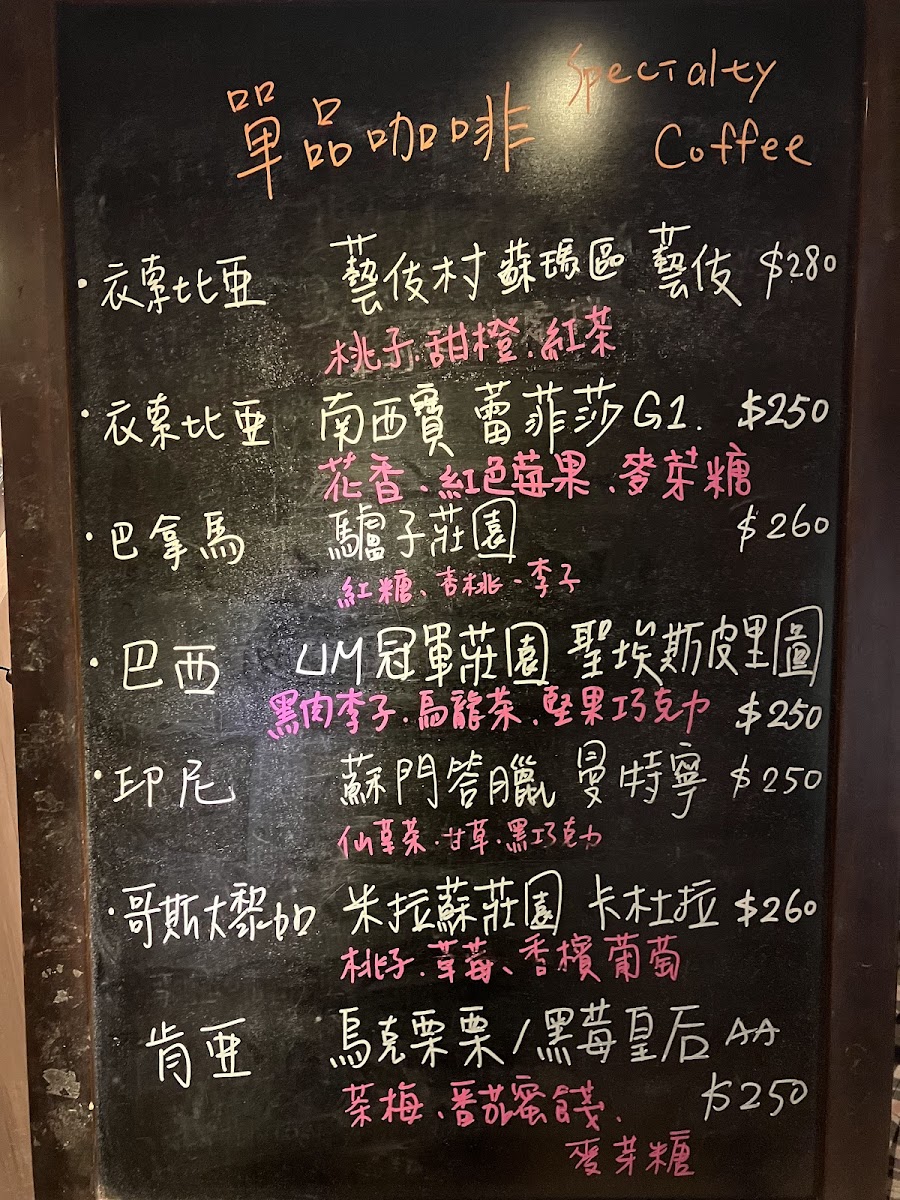 單品咖啡 Specialty Coffee
·衣索比亞 藝伎村 蘇瑪區 藝伎 $280
桃子.甜橙.紅茶
·衣索比亞 南西寶 蕾菲莎 G1. $250
花香、紅色莓果、麥芽糖
·巴拿馬 驢子莊園 $260
紅糖、杏桃、李子
·巴西 UM冠軍莊園 聖埃斯皮里圖
黑肉李子.烏龍茶.堅果巧克力 $250
·印尼 蘇門答臘 曼特寧 $250
仙草茶.甘草.黑巧克力
·哥斯大黎加 米拉蘇莊園 卡杜拉 $260
桃子.草莓、香檳葡萄
肯亞 烏克栗栗/黑莓皇后 AA
茶梅、番茄蜜餞、 $250
麥芽糖